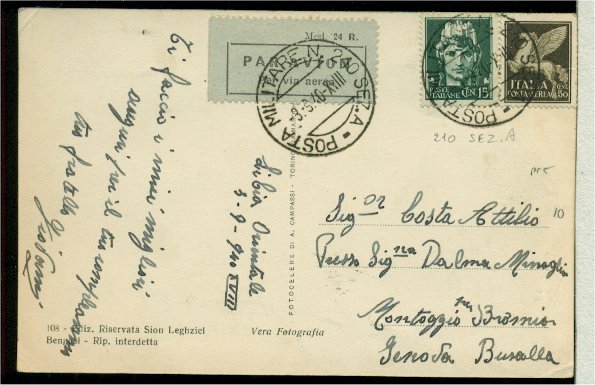 Ti faccio i miei migliori
auguri per il tuo compleanno
tuo fratello
Giovanni
Mod. 24 R.
PAR AVION
Per via aerea
POSTA MILITARE N. 210 SEZ. A
9.9.40-XVIII
POSTE ITALIANE CENT. 15
ITALIA
POSTA AEREA CENT. 50
210 SEZ. A
Libia Orientale
3-9-940 XVIII
FOTOCELERE DI A. CAMPASSI - TORINO
10
Sig.or Costa Attilio
Presso Sig.na Dalma
Montoggio
Genova Busalla
108 - Ediz. Riservata Sion Leghziel
Bengasi - Rip. interdetta
Vera Fotografia